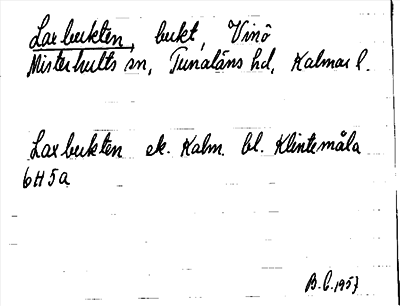 Laxbukten, bukt, Vinö
Misterhults sn, Tunaläns hd, Kalmar l.
Laxbukten ek. Kalm. bl. Klintemåla
6H5a
B.C. 1957